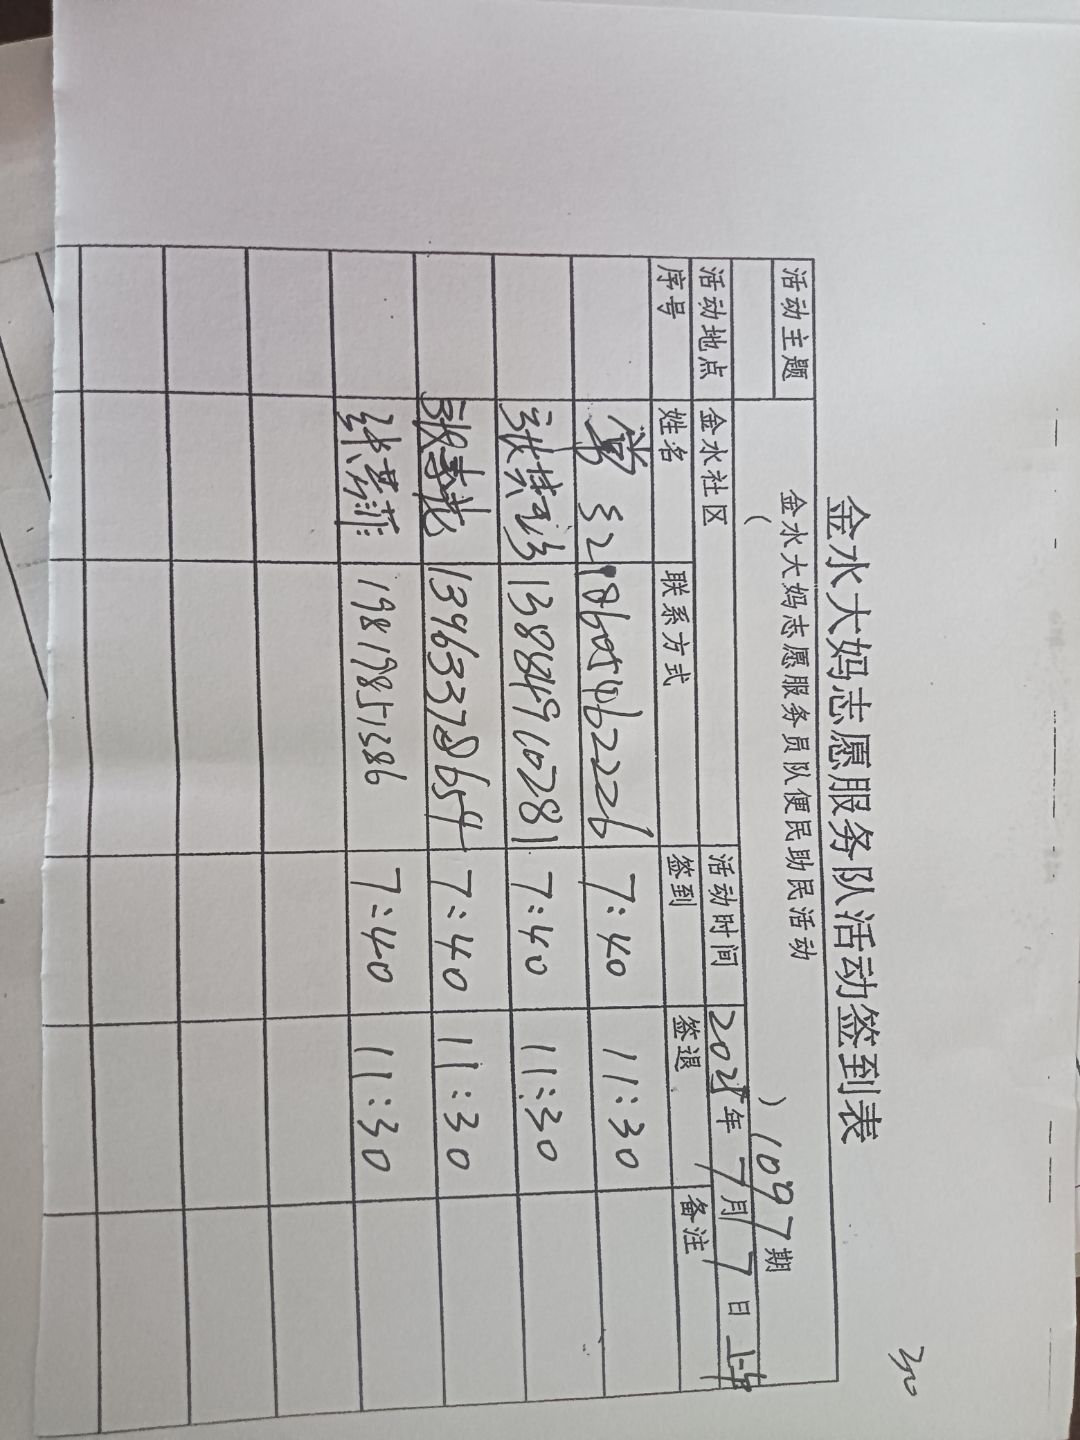 30
金水大妈志愿服务队活动签到表
活动主题 金水大妈志愿服务员队便民助民活动
( ) 1097期
活动地点 金水社区 活动时间 年7月7日上午
序号 姓名 联系方式 签到 签退 备注
18605462226 7:40 11:30
张 13884910281 7:40 11:30
张 13963378654 7:40 11:30
张 19819851386 7:40 11:30